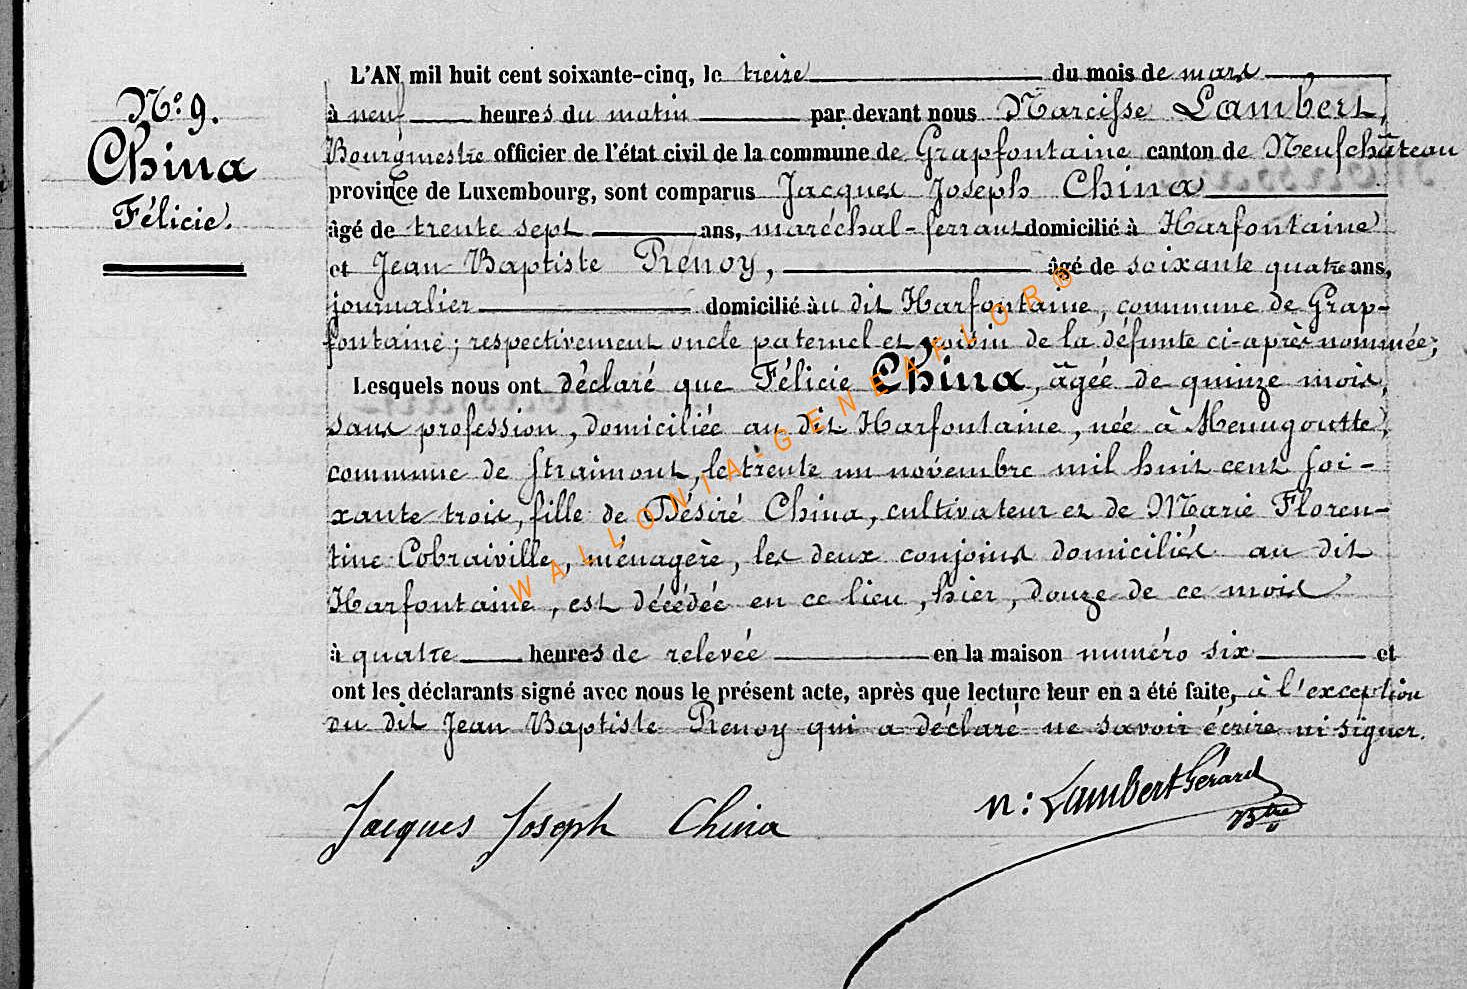 N.º 9.
China
Félicie.
L'AN mil huit cent soixante-cinq, le treize du mois de mars
à neuf heures du matin par devant nous Narcisse Lambert,
Bourgmestre officier de l'état civil de la commune de Grapfontaine canton de Neufchâteau
province de Luxembourg, sont comparus Jacques Joseph China
âgé de trente sept ans, maréchal-ferrant domicilié à Harfontaine
et Jean Baptiste Renoy, âgé de soixante quatre ans,
journalier domicilié au dit Harfontaine, commune de Grap-
fontaine; respectivement oncle paternel et voisin de la défunte ci-après nommée;
Lesquels nous ont déclaré que Félicie China, âgée de quinze mois,
sans profession, domiciliée au dit Harfontaine, née à Menugoutte,
commune de Straimont, le trente un novembre mil huit cent soi-
xante trois, fille de Désiré China, cultivateur et de Marie Floren-
tine Cobraiville, ménagère, les deux conjoins domiciliés au dit
Harfontaine, est décédée en ce lieu, hier, douze de ce mois
à quatre heures de relevée en la maison numéro six et
ont les déclarants signé avec nous le présent acte, après que lecture leur en a été faite, à l'exception
du dit Jean Baptiste Renoy qui a déclaré ne savoir écrire ni signer.
Jacques Joseph China
N: Lambert Gérard
Btre
WALLONIA-GENEAFLOR®